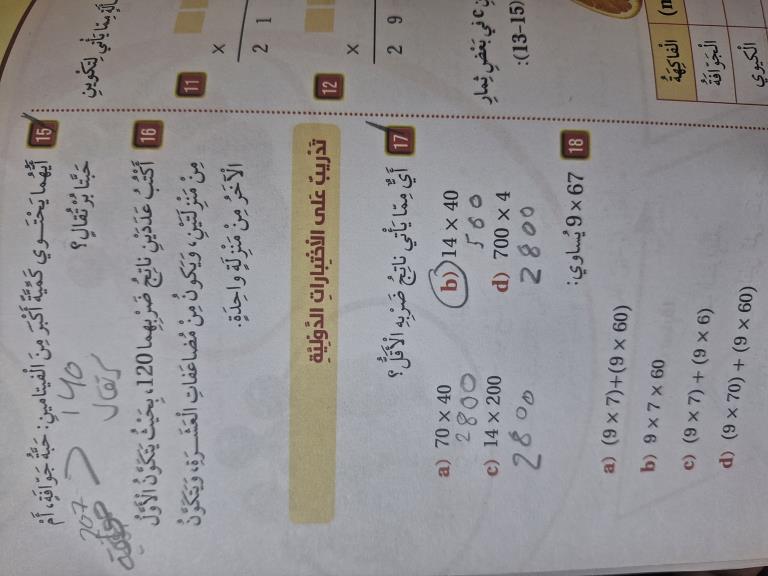 15 أَيُّهُما يَحْتَوي كَمِّيَّةً أَكْبَرَ مِنَ الْفيتامينِ: حَبَّةُ جَوّافَةٍ، أَمْ
حَبَّتا بُرْتُقالٍ؟
207 > 140
جوافة برتقال
16 أَكْتُبُ عَدَدَيْنِ ناتِجُ ضَرْبِهِما 120، بِحَيْثُ يَتَكَوَّنُ الْأَوَّلُ
مِنْ مَنْزِلَتَيْنِ، وَيَكونُ مِنْ مُضاعَفاتِ الْعَشَرَةِ، وَيَتَكَوَّنُ
الْآخَرُ مِنْ مَنْزِلَةٍ واحِدَةٍ.
تَدْريبٌ عَلى الِاخْتِباراتِ الدَّوْلِيَّةِ
17 أَيٌّ مِمّا يَأْتي ناتِجُ ضَرْبِهِ الْأَقَلُّ؟
a) 70 × 40 b) 14 × 40
2800 560
c) 14 × 200 d) 700 × 4
2800 2800
18 9 × 67 يُساوي:
a) (9 × 7)+(9 × 60)
b) 9 × 7 × 60
c) (9 × 7) + (9 × 6)
d) (9 × 70) + (9 × 60)
مِمّا يَأْتي لِتَكْوينِ
11
×
2 1
12
×
2 9
في بَعْضِ ثِمارِ
(13-15):
الْفاكِهَةُ
الْجَوّافَةُ
الْكيوي